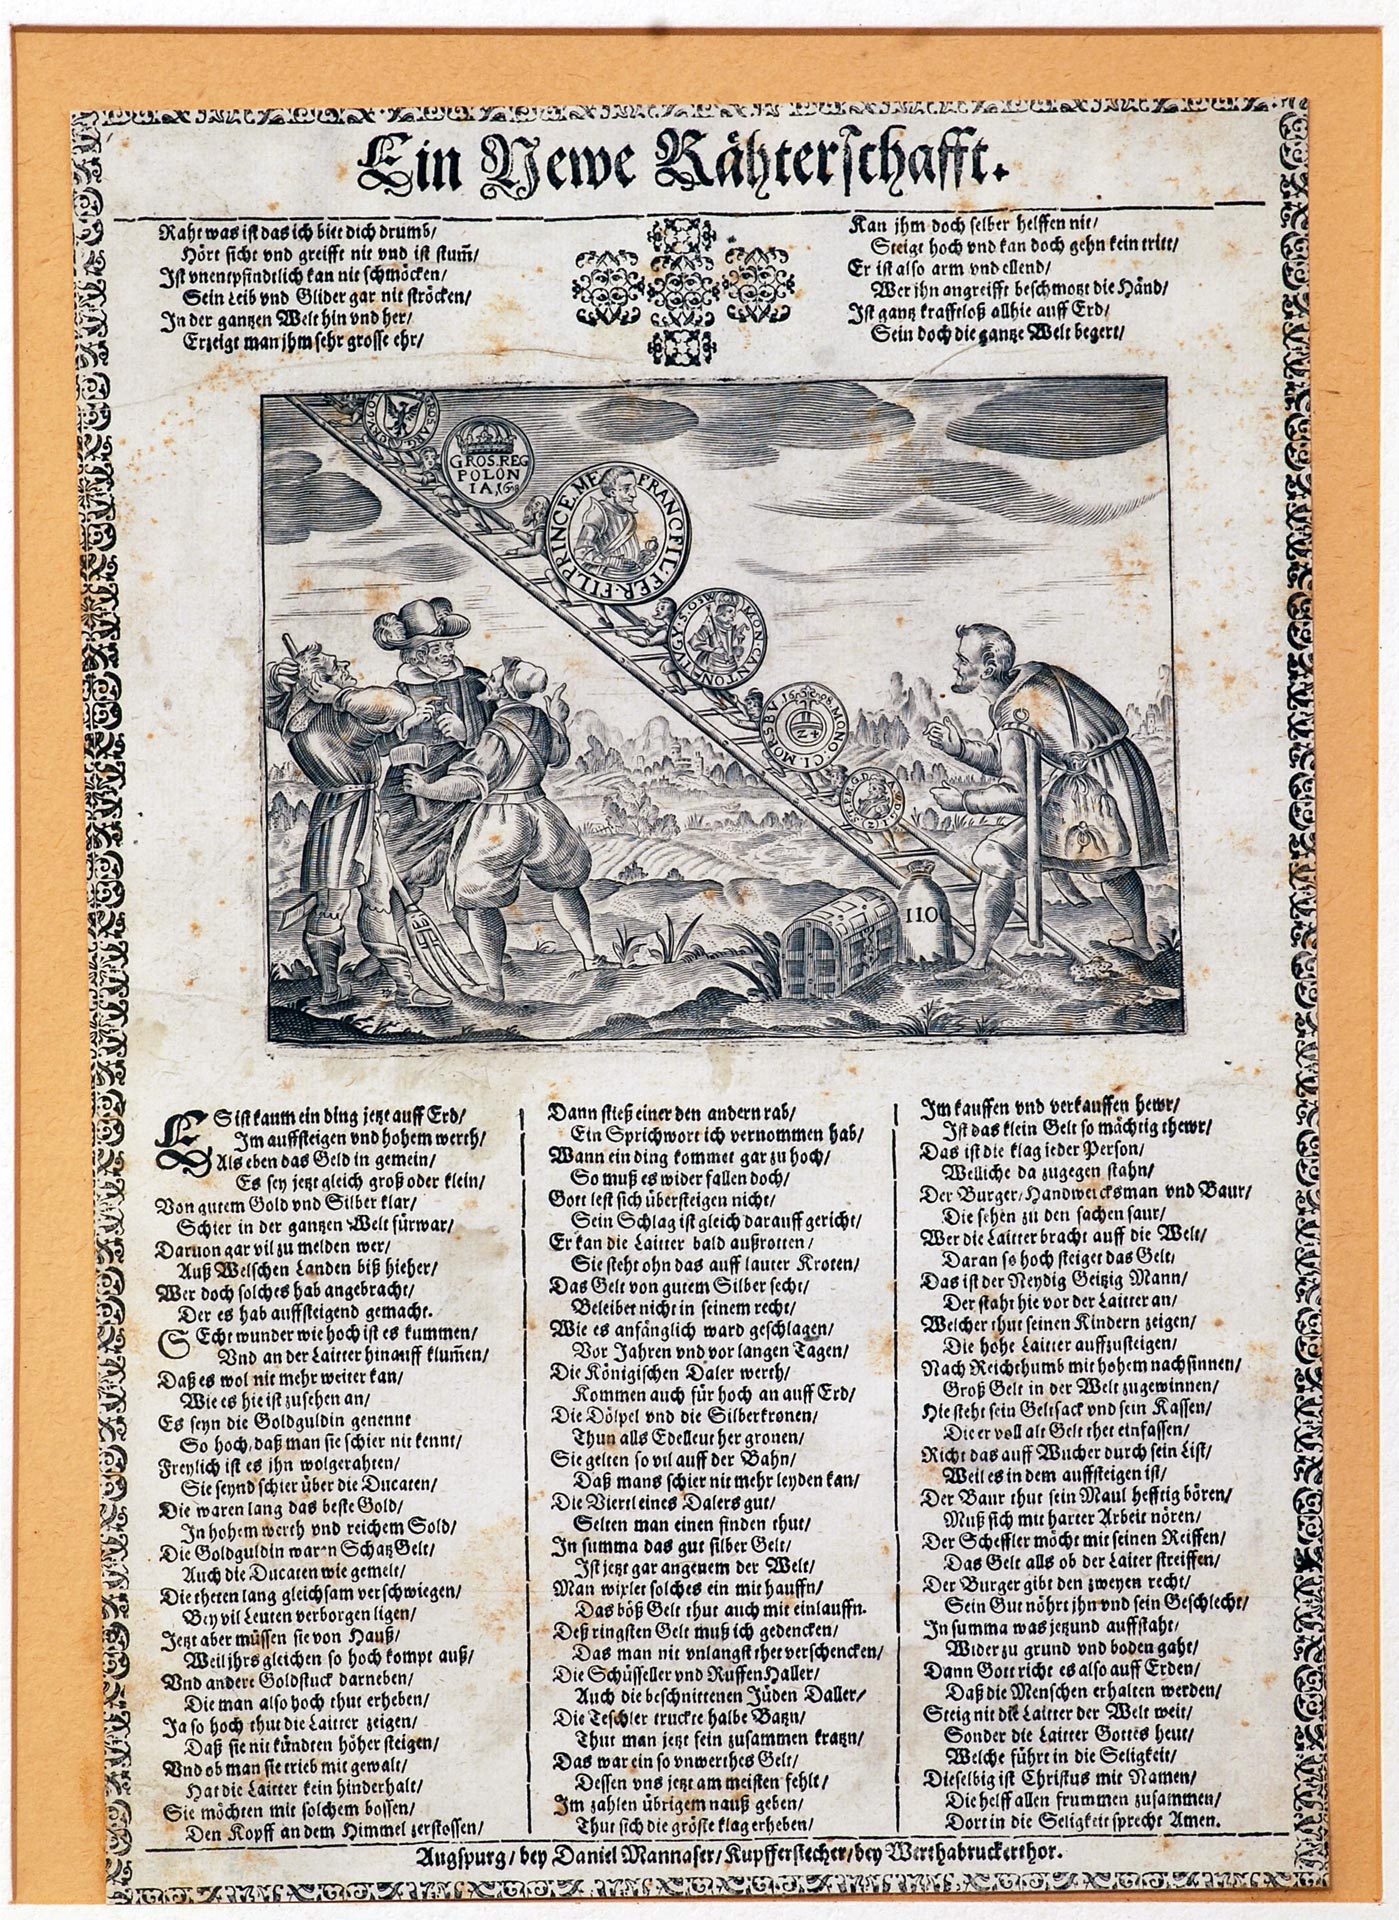 Ein Newe Rähterschafft.
Raht was ist das ich bitt dich drumb/
Hört sicht vnd greifft nit vnd ist stum̃/
Ist vnentpfindtlich kan nit schmöcken/
Sein Leib vnd Glider gar nit ströcken/
In der gantzen Welt hin vnd her/
Erzeigt man jhm sehr grosse ehr/
Kan jhm doch selber helffen nit/
Steigt hoch vnd kan doch gehn kein tritt/
Er ist also arm vnd ellend/
Wer jhn angreifft beschmotzt die Händ/
Ist gantz krafftloß allhie auff Erd/
Sein doch die gantze Welt begert/
GROS.REG
POLON
IA,
FRANC.FIL.FER.FIL.PRINC.E.ME
MON.CANTON
1608.MONO
24
110
ES ist kaum ein ding jetzt auff Erd/
Im auffsteigen vnd hohem werth/
Als eben das Geld in gemein/
Es sey jetzt gleich groß oder klein/
Von gutem Gold vnd Silber klar/
Schier in der gantzen Welt fürwar/
Daruon gar vil zu melden wer/
Auß Welschen Landen biß hieher/
Wer doch solches hab angebracht/
Der es hab auffsteigend gemacht.
SEcht wunder wie hoch ist es kummen/
Vnd an der Laitter hinauff klum̃en/
Daß es wol nit mehr weiter kan/
Wie es hie ist zusehen an/
Es seyn die Goldguldin genennt
So hoch, daß man sie schier nit kennt/
Freylich ist es jhn wolgerahten/
Sie seynd schier über die Ducaten/
Die waren lang das beste Gold/
In hohem werth vnd reichem Sold/
Die Goldguldin warn Schatz Gelt/
Auch die Ducaten wie gemelt/
Die theten lang gleichsam verschwiegen/
Bey vil Leuten verborgen ligen/
Jetzt aber müssen sie von Hauß/
Weil jhrs gleichen so hoch kompt auß/
Vnd andere Goldstuck darneben/
Die man also hoch thut erheben/
Ja so hoch thut die Laitter zeigen/
Daß sie nit kündten höher steigen/
Vnd ob man sie trieb mit gewalt/
Hat die Laitter kein hinderhalt/
Sie möchten mit solchem bossen/
Den Kopff an dem Himmel zerstossen/
Dann stieß einer den andern rab/
Ein Sprichwort ich vernommen hab/
Wann ein ding kommet gar zu hoch/
So muß es wider fallen doch/
Gott lest sich übersteigen nicht/
Sein Schlag ist gleich darauff gericht/
Er kan die Laitter bald außrotten/
Sie steht ohn das auff lauter Kroten/
Das Gelt von gutem Silber secht/
Beleibet nicht in seinem recht/
Wie es anfänglich ward geschlagen/
Vor Jahren vnd vor langen Tagen/
Die Königischen Daler werth/
Kommen auch für hoch an auff Erd/
Die Dölpel vnd die Silberkronen/
Thun als Edelleut her gronen/
Sie gelten so vil auff der Bahn/
Daß mans schier nit mehr leyden kan/
Die Viertl eines Dalers gut/
Selten man einen finden thut/
In summa das gut silber Gelt/
Ist jetzt gar angenem der Welt/
Man wixlet solches ein mit hauffn/
Das böß Gelt thut auch mit einlauffn.
Deß ringsten Gelt muß ich gedencken/
Das man nit vnlangst thet verschencken/
Die Schüsseller vnd Ruffen Haller/
Auch die beschnittenen Jüden Daller/
Die Teschler truckte halbe Batzn/
Thut man jetzt fein zusammen kratzn/
Das war ein so vnwerthes Gelt/
Dessen vns jetzt am meisten fehlt/
Im zahlen übrigem nauß geben/
Thut sich die gröste klag erheben/
Im kauffen vnd verkauffen hewr/
Ist das klein Gelt so mächtig thewr/
Das ist die klag jeder Person/
Welliche da zugegen stahn/
Der Burger/ Handwercksman vnd Baur/
Die sehen zu den sachen saur/
Wer die Laitter bracht auff die Welt/
Daran so hoch steiget das Gelt/
Das ist der Neydig Geitzig Mann/
Der staht hie vor der Laitter an/
Welcher thut seinen Kindern zeigen/
Die hohe Laitter auffzusteigen/
Nach Reichthumb mit hohem nachsinnen/
Groß Gelt in der Welt zugewinnen/
Hie steht sein Geltsack vnd sein Kassen/
Die er voll alt Gelt thet einfassen/
Richt das auff Wucher durch sein List/
Weil es in dem auffsteigen ist/
Der Baur thut sein Maul hefftig bören/
Muß sich mit harter Arbeit nören/
Der Scheffler möcht mit seinen Reiffen/
Das Gelt alls ob der Laiter streiffen/
Der Burger gibt den zweyen recht/
Sein Gut nöhrt jhn vnd sein Geschlecht/
In summa was jetzund auffstaht/
Wider zu grund vnd boden gaht/
Dann Gott richt es also auff Erden/
Daß die Menschen erhalten werden/
Steig nit die Laitter der Welt weit/
Sonder die Laitter Gottes heut/
Welche führt in die Seligkeit/
Dieselbig ist Christus mit Namen/
Die helff allen frummen zusammen/
Dort in die Seligkeit sprecht Amen.
Augspurg/ bey Daniel Mannaser/ Kupfferstecher/ bey Werthabruckerthor.